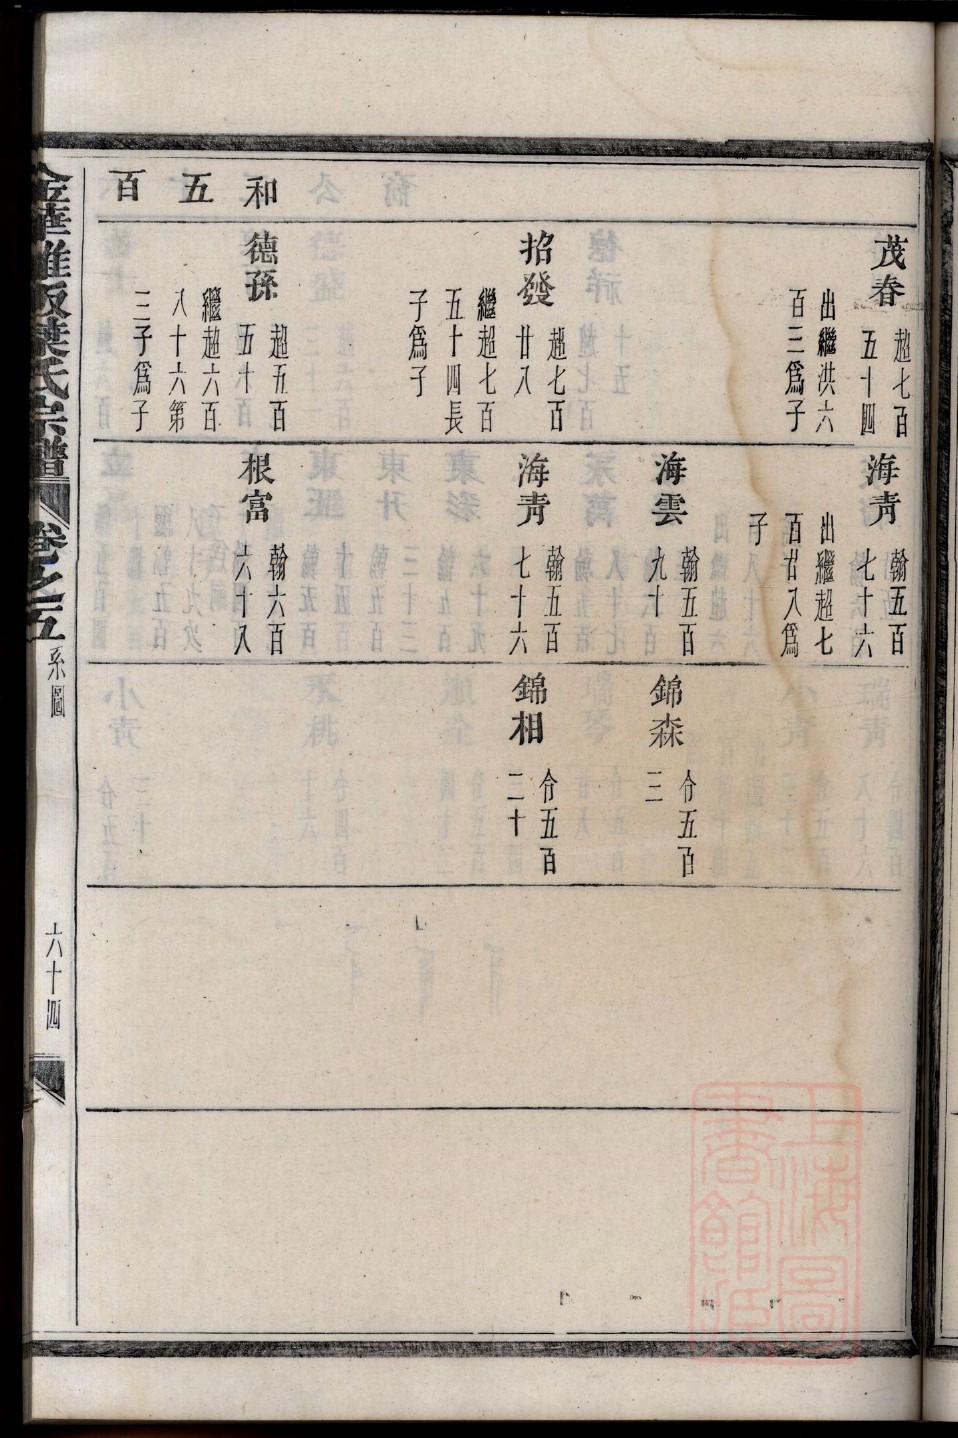 和五百
茂春
超七百
五十四
出繼洪六
百三爲子
招發
超七百
廿八
繼超七百
五十四長
子爲子
德孫
超五百
五十百
繼超六百
八十六第
三子爲子
海青
翰五百
七十六
出繼超七
百廿八爲
子
海雲
翰五百
九十三
海青
翰五百
七十六
根富
翰六百
六十八
錦森
分五百
三
錦相
分五百
二十
葉氏宗譜
卷之五
系圖
六十四
上海圖
書館藏